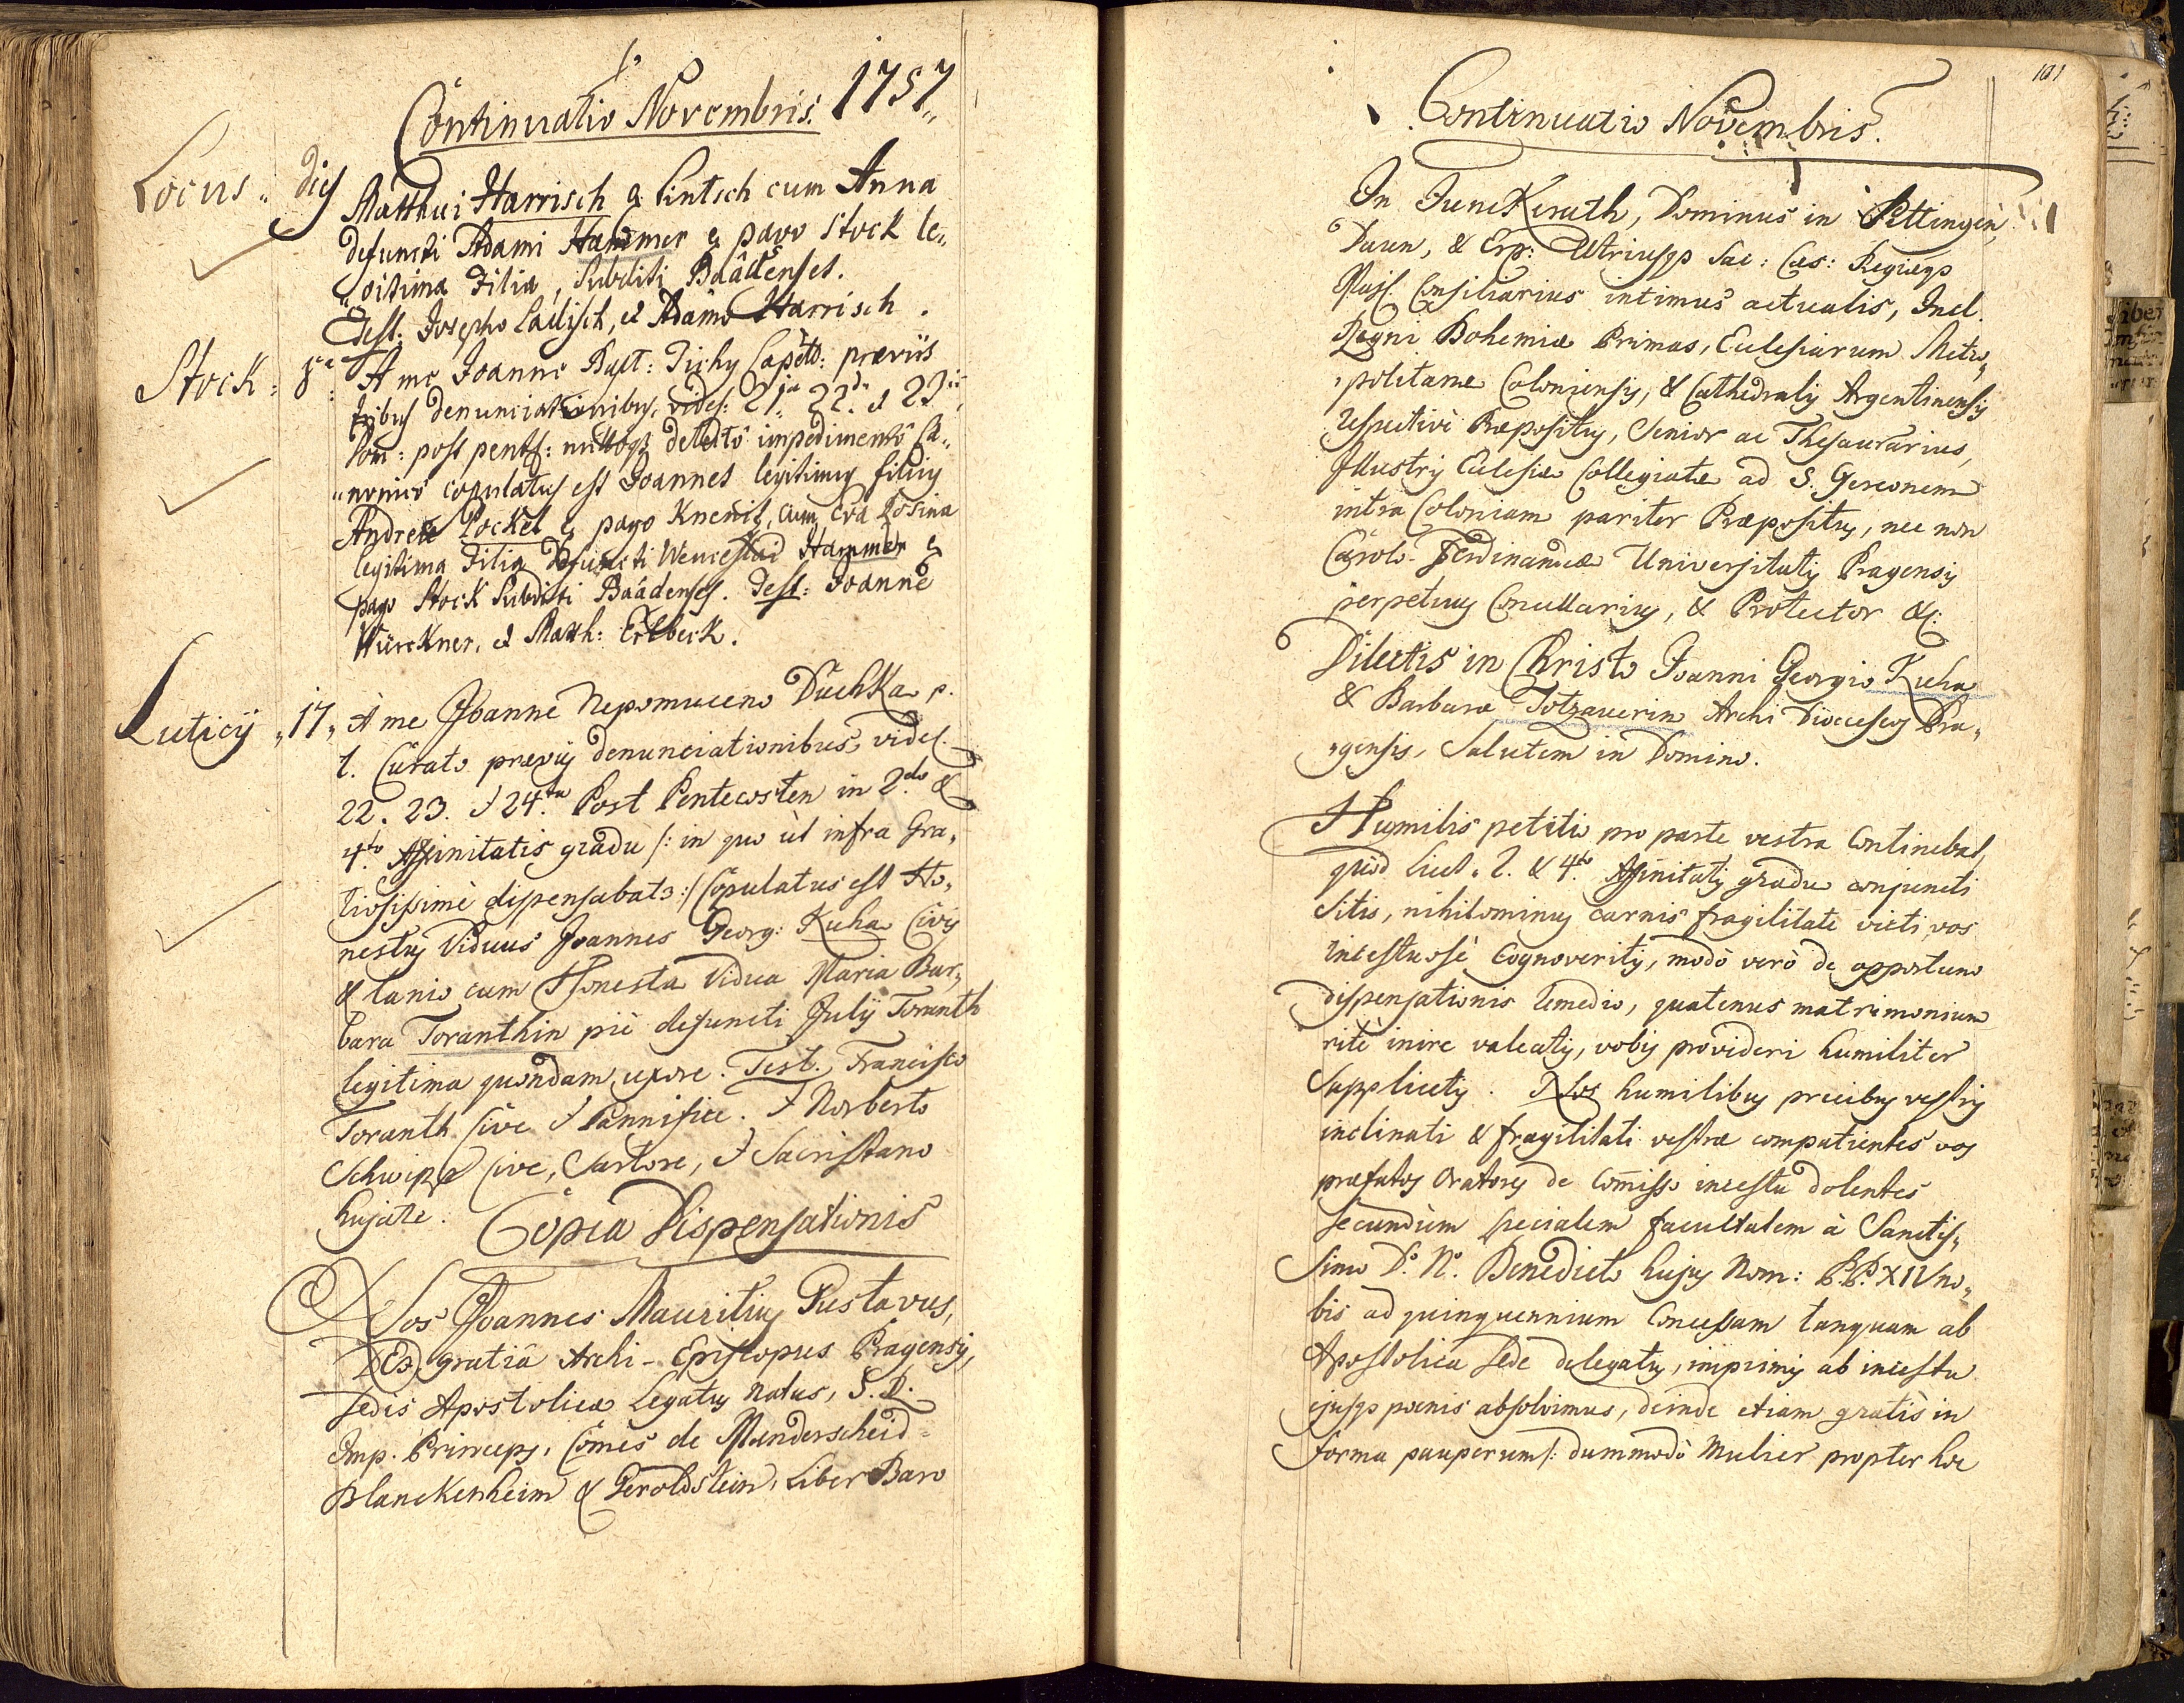 Continuatio Novembris. 1757
Locus dies
Matthaei Harrisch e Lintsch cum Anna
defuncti Adami Hammer e pago Stock le„
„gitima Filia, Subditi Baadenses.
Test: Josepho Lailisch, et Adamo Harrisch.
Stock: 8va A me Joanne Bapt: Tichy Capello: praeviis
tribus denunciationibus, videl: 21ma 22da et 23tia
Dom: post pent: nulloq detecto impedimento Ca„
„nonico copulatus est Joannes legitimus filius
Andreae Pockel e pago Kneniz, cum Eva Rosina
legitima Filia Defuncti Wenceslai Hammer e
pago Stock Subditi Baadenses. Test: Joanne
Würckner, et Matth: Erlbeck.
Luticij „17„ A me Joanne Nepomuceno Duchka p.
t. Curato praevijs denunciationibus, videl.
22. 23. et 24ta Post Pentecosten in 2do &
4to Affinitatis gradu /: in quo ut infra Gra„
tiosissime dispensabatr :/ Copulatus est Ho„
nestus Viduus Joannes Georg: Kuha Civis
& Lanio cum Honesta Vidua Maria Bar„
bara Toranthin pie defuncti Julij Toranth
legitima quondam uxore. Test. Francisco
Toranth Cive et Pannifice. et Norberto
Cive, Sartore, et Sacristano
hujate.
Copia Dispensationis
Nos Joannes Mauritius Gustavus,
Dei gratia Archi-Episcopus Pragensis,
Sedis Apostolicae Legatus Natus, S. R.
Imp. Princeps, Comes de Manderscheid-
Blanckenheim & Geroldstein, Liber Baro
101
Continuatio Novembris.
In Junckerath, Dominus in Pettingen,
Daun, & Erp: Utriusqe Sac: Caes: Regiaeqe
Majt Consiliarius intimus actualis, Incl.
Regni Bohemiae Primas, Ecclesiarum Metro„
„politanae Coloniensis, & Cathedralis Argentinensis
respective Praepositus, Senior ac Thesaurarius,
Illustris Ecclesiae Collegiatae ad S. Gereonem
intra Coloniam pariter Praepositus, nec non
Carolo-Ferdinandeae Universitatis Pragensis
perpetuus Cancellarius, & Protector &c:
Dilectis in Christo Joanni Georgio Kuha
& Barbarae Totzauerin Archi Dioeceseos Pra„
„gensis, Salutem in Domino.
Humilis petitio pro parte vestra continebat,
quod licet 2. & 4to Affinitatis gradu conjuncti
sitis, nihilominus carnis fragilitate victi, vos
incestuose Cognoveritis, modo vero de opportuno
dispensationis remedio, quatenus matrimonium
rite inire valeatis, vobis provideri humiliter
supplicetis. Nos humilibus precibus vestris
inclinati & fragilitati vestrae compatientes vos
praefatos Oratores de Comisso incestu dolentes
secundum specialem facultatem à Sanctis„
simo D. N. Benedicto hujus Nom: P.P. XIV no„
bis ad quinquennium Concessam tanquam ab
Apostolica Sede delegatus, imprimis ab incestu
ejusqe poenis absolvimus, deinde etiam gratis in
forma pauperum /: dummodo Mulier propter hoc